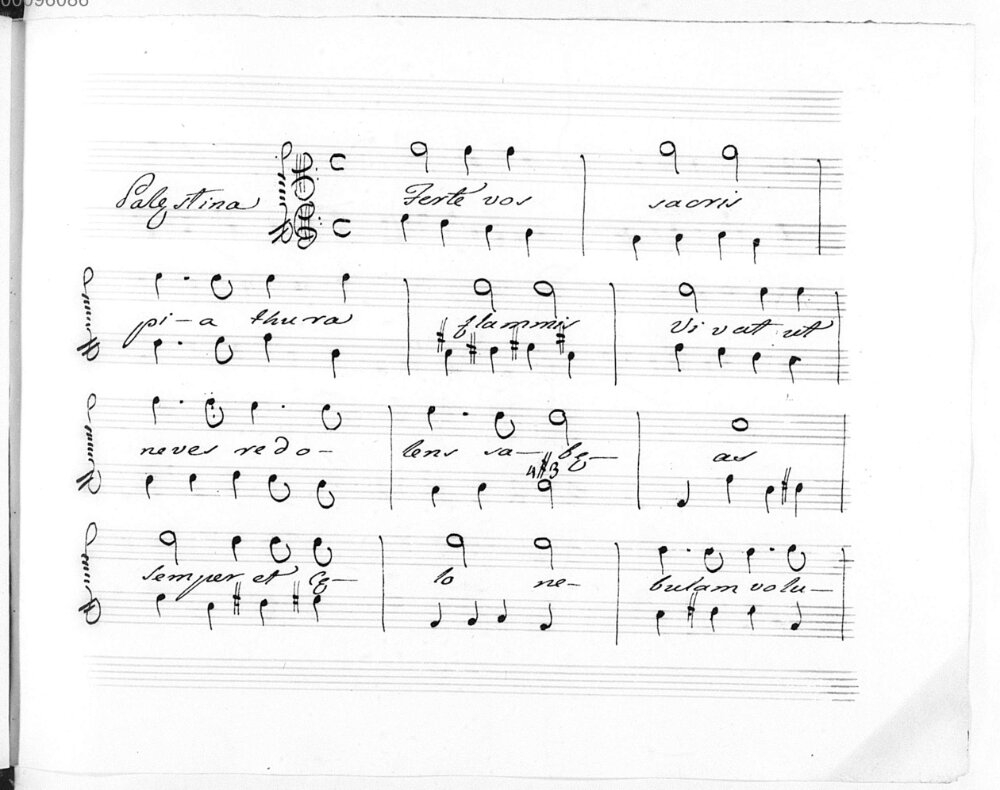 00096086
Palestina
Ferte vos sacris
pi-a thura flammis Vivat ut
neves redo- lens sa- bę- as
4#3
semper et cę- lo ne- bulam volu-